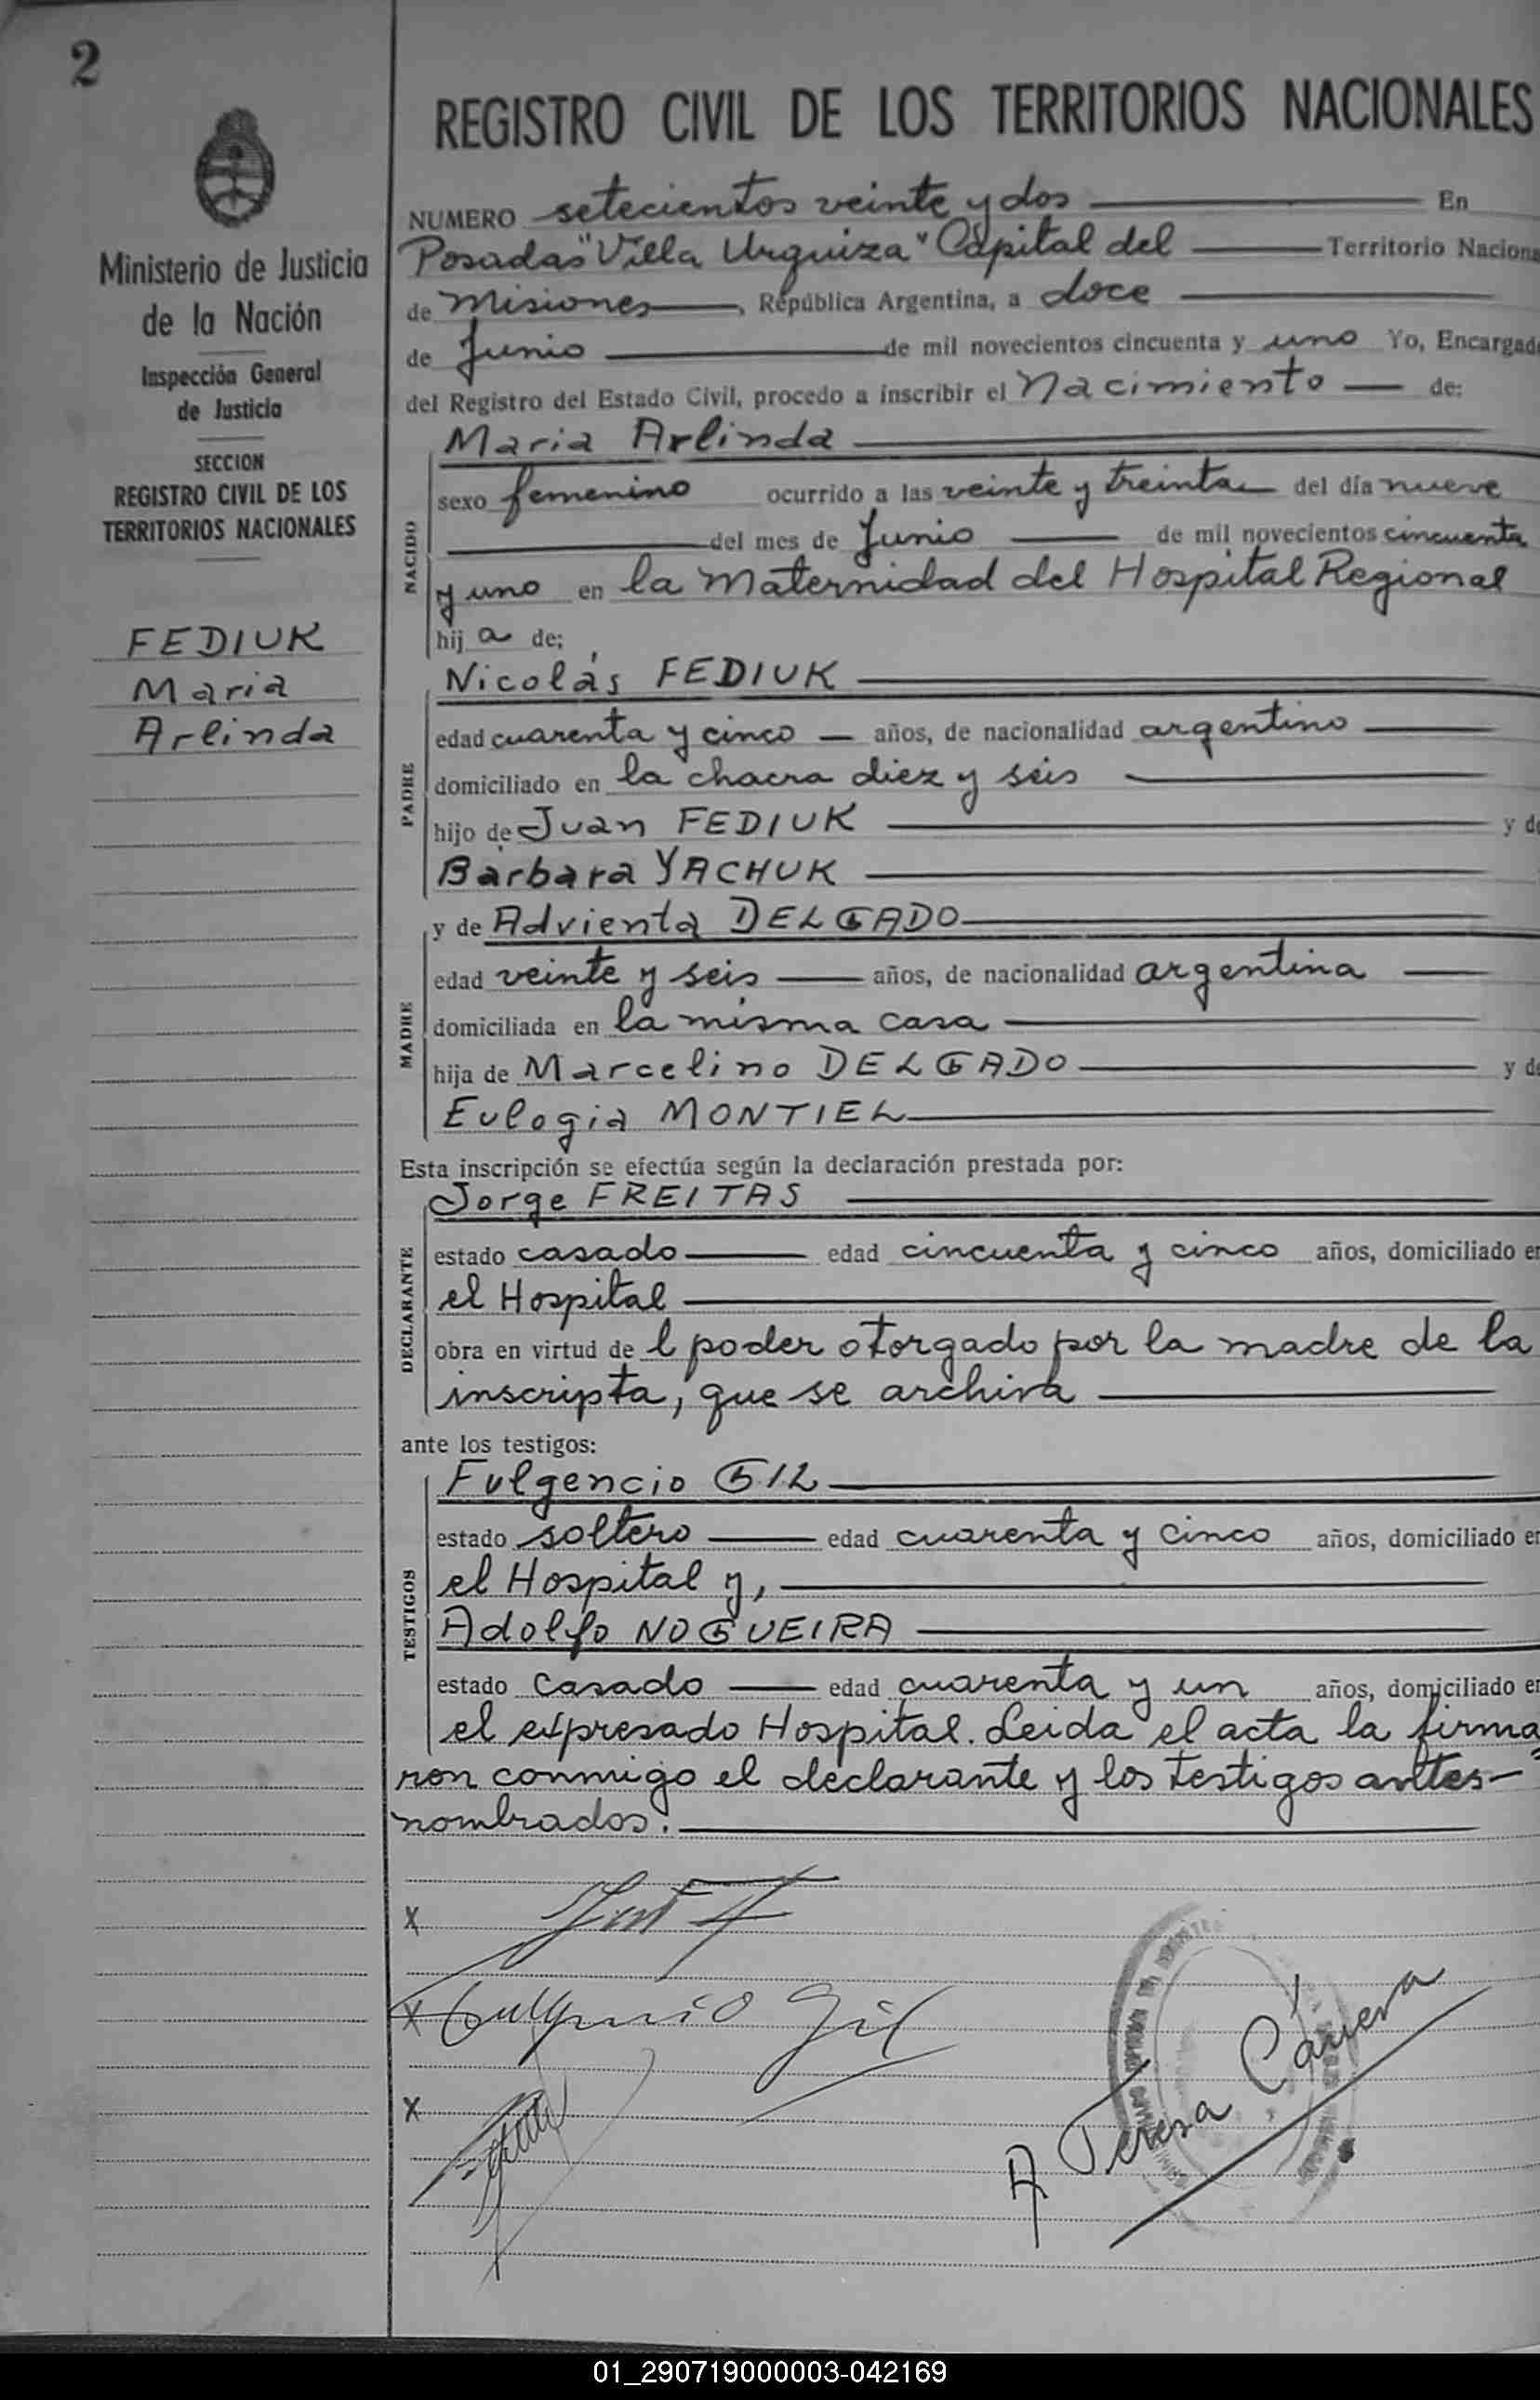 2
Ministerio de Justicia
de la Nación
Inspección General
de Justicia
SECCION
REGISTRO CIVIL DE LOS
TERRITORIOS NACIONALES
FEDIUK
Maria
Arlinda
REGISTRO CIVIL DE LOS TERRITORIOS NACIONALES
NUMERO setecientos veinte y dos En
Posadas "Villa Urquiza" Capital del Territorio Naciona
de Misiones, República Argentina, a doce
de Junio de mil novecientos cincuenta y uno Yo, Encargad
del Registro del Estado Civil, procedo a inscribir el Nacimiento de:
Maria Arlinda
sexo femenino ocurrido a las veinte y treinta del día nueve
del mes de Junio de mil novecientos cincuenta
y uno en la Maternidad del Hospital Regional
hij a de;
NACIDO
Nicolás FEDIUK
edad cuarenta y cinco años, de nacionalidad argentino
domiciliado en la chacra diez y seis
hijo de Juan FEDIUK y de
Barbara YACHUK
PADRE
y de Advienta DELGADO
edad veinte y seis años, de nacionalidad argentina
domiciliada en la misma casa
hija de Marcelino DELGADO y de
Eulogia MONTIEL
MADRE
Esta inscripción se efectúa según la declaración prestada por:
Jorge FREITAS
estado casado edad cincuenta y cinco años, domiciliado en
el Hospital
obra en virtud de l poder otorgado por la madre de la
inscripta, que se archiva
DECLARANTE
ante los testigos:
Fulgencio GIL
estado soltero edad cuarenta y cinco años, domiciliado en
el Hospital y,
Adolfo NOGUEIRA
estado casado edad cuarenta y un años, domiciliado en
el expresado Hospital. Leida el acta la firma
TESTIGOS
ron conmigo el declarante y los testigos antes-
nombrados.
X
X Fulgencio Gil
X
A Teresa Cárrera
01_290719000003-042169